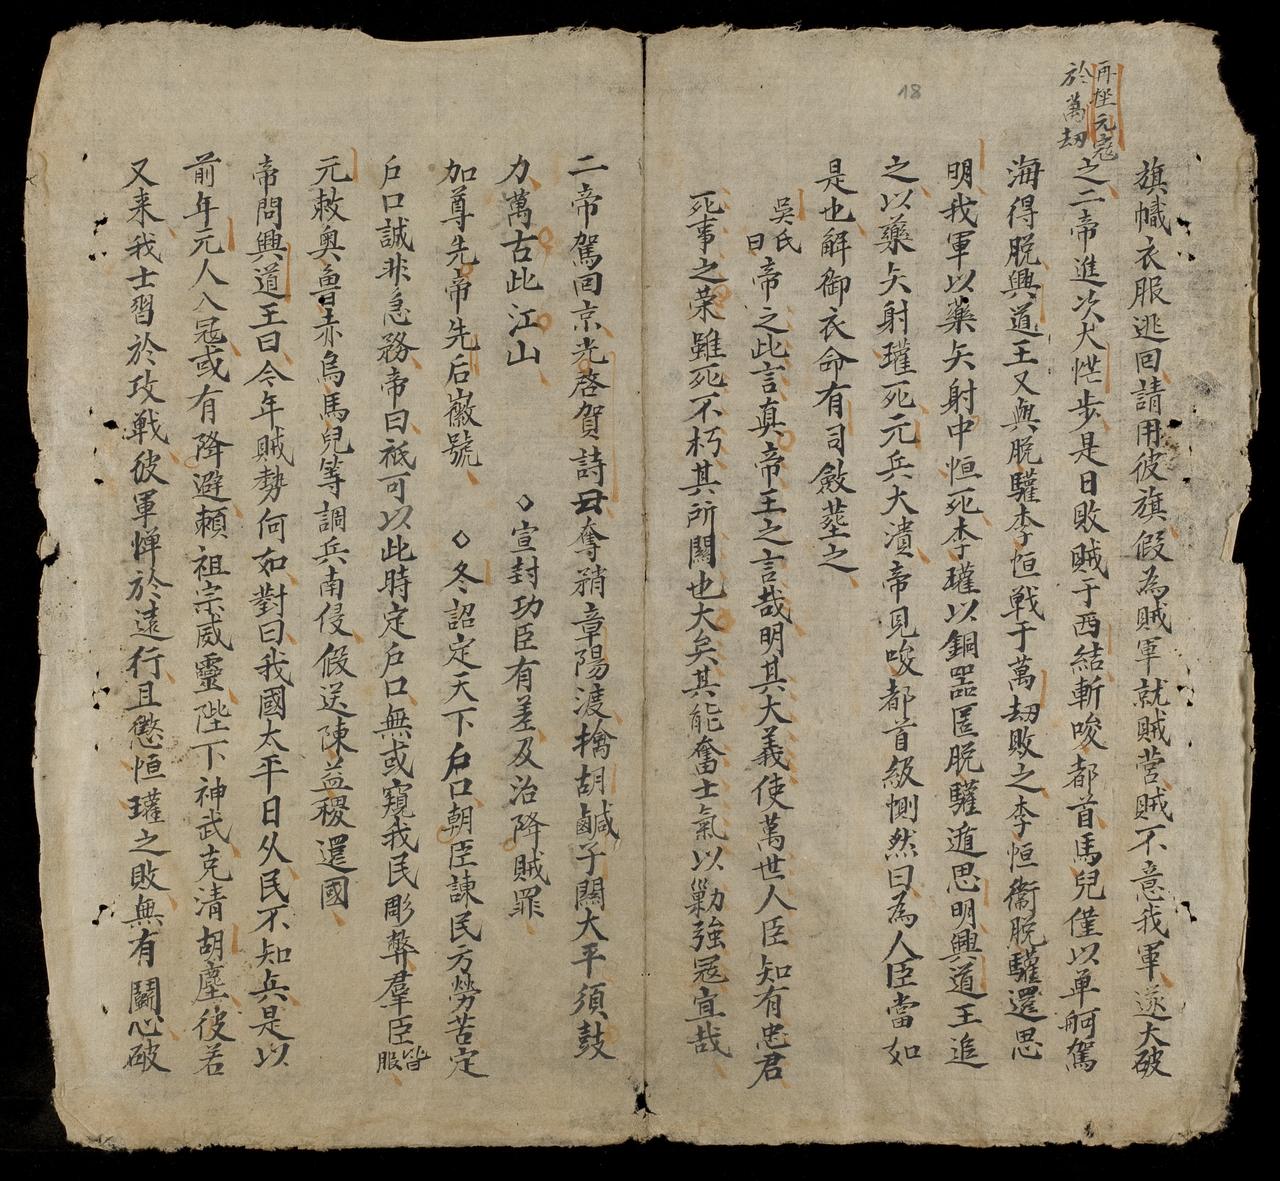 18
再挫元寇
於萬刼
旗幟衣服逃回請用彼旗假為賊軍就賊营賊不意我軍遂大破
之二帝進次大忙步是日敗賊于西結斬唆都首馬兒僅以单舸駕
海得脱興道王又與脱驩李恒戦于萬刼敗之李恒衞脱驩還思
明我軍以藥矢射中恒死李瓘以銅噐匿脱驩遁思明興道王追
之以藥矢射瓘死元兵大潰帝見唆都首級惻然曰為人臣當如
是也解御衣命有司斂塟之
吳氏曰帝之此言真帝王之言哉明其大義使萬世人臣知有忠君
死事之荣雖死不朽其所関也大矣其能奮士氣以勦強冦宜哉
二帝駕回京光啓賀詩云奪矟章陽渡擒胡鹹子関大平須鼓
力萬古此江山
◇宣封功臣有差及治降賊罪
加尊先帝先后徽號
◇冬詔定天下户口朝臣諫民方勞苦定
户口誠非急務帝曰祇可以此時定户口無或窺我民彫弊羣臣皆服
元敕奥魯赤烏馬兒等調兵南侵假送陳益稷還國
帝問興道王曰今年賊勢何如對曰我國太平日久民不知兵是以
前年元人入冦或有降避頼祖宗威靈陛下神武克清胡塵彼若
又来我士習於攻戰彼軍惮於遠行且懲恒瓘之敗無有鬭心破